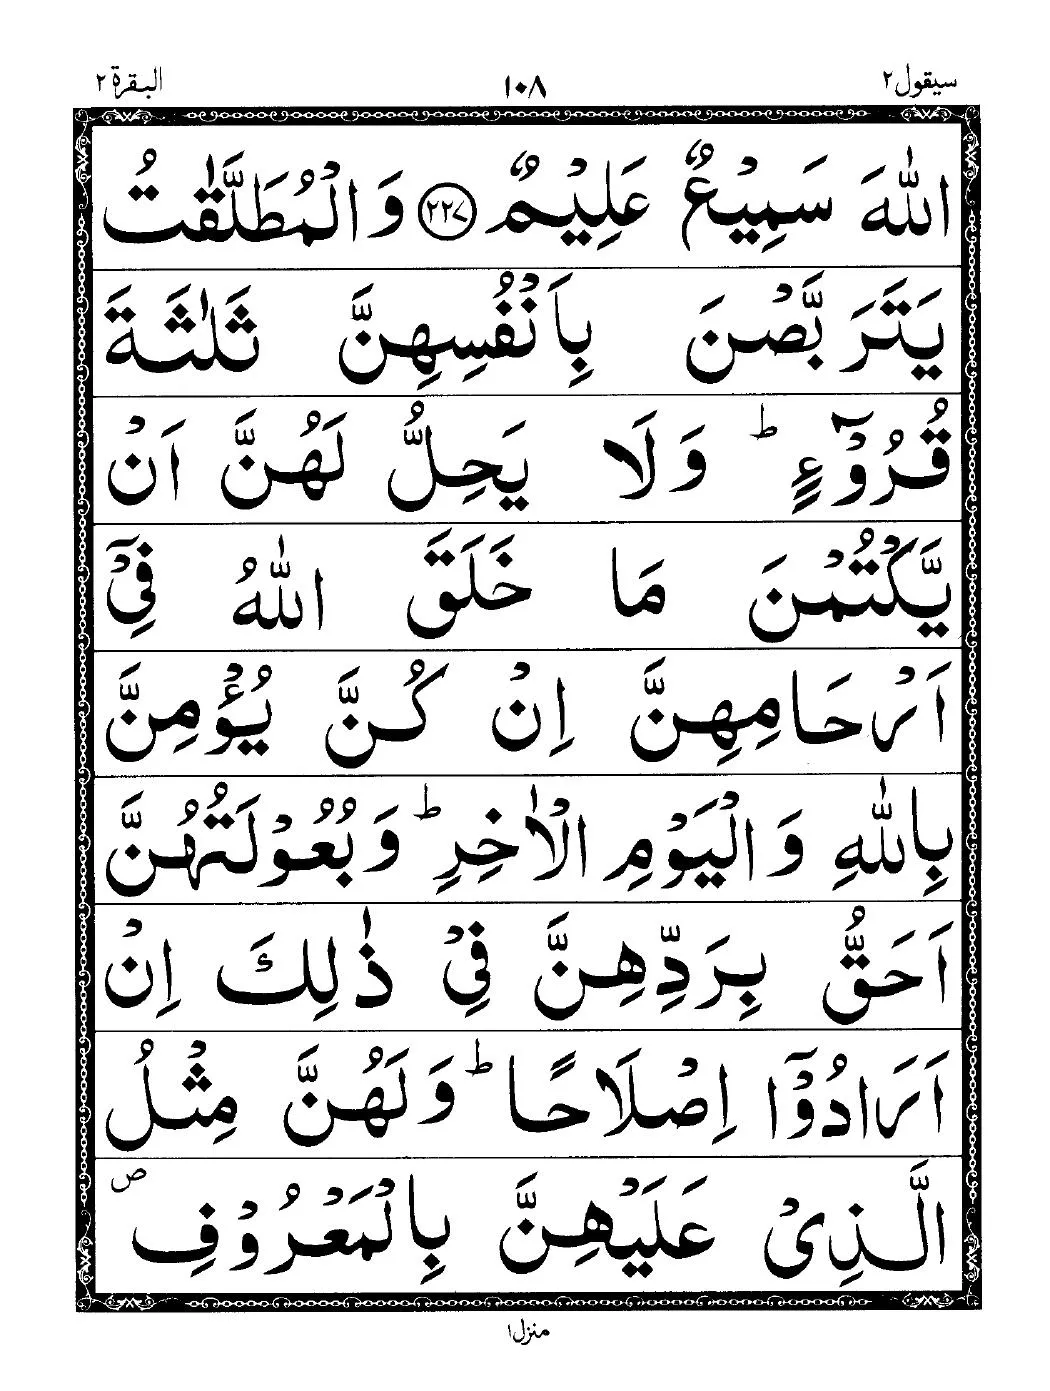 سيقول ٢
١٠٨
البقرة ٢
اللّٰهَ سَمِيْعٌ عَلِيْمٌ ﴿٢٢٧﴾ وَالْمُطَلَّقٰتُ
يَتَرَبَّصْنَ بِاَنْفُسِهِنَّ ثَلٰثَةَ
قُرُوْٓءٍ ؕ وَلَا يَحِلُّ لَهُنَّ اَنْ
يَّكْتُمْنَ مَا خَلَقَ اللّٰهُ فِيْٓ
اَرْحَامِهِنَّ اِنْ كُنَّ يُؤْمِنَّ
بِاللّٰهِ وَالْيَوْمِ الْاٰخِرِ ؕ وَبُعُوْلَتُهُنَّ
اَحَقُّ بِرَدِّهِنَّ فِيْ ذٰلِكَ اِنْ
اَرَادُوْٓا اِصْلَاحًا ؕ وَلَهُنَّ مِثْلُ
الَّذِيْ عَلَيْهِنَّ بِالْمَعْرُوْفِ ۪
منزل ١